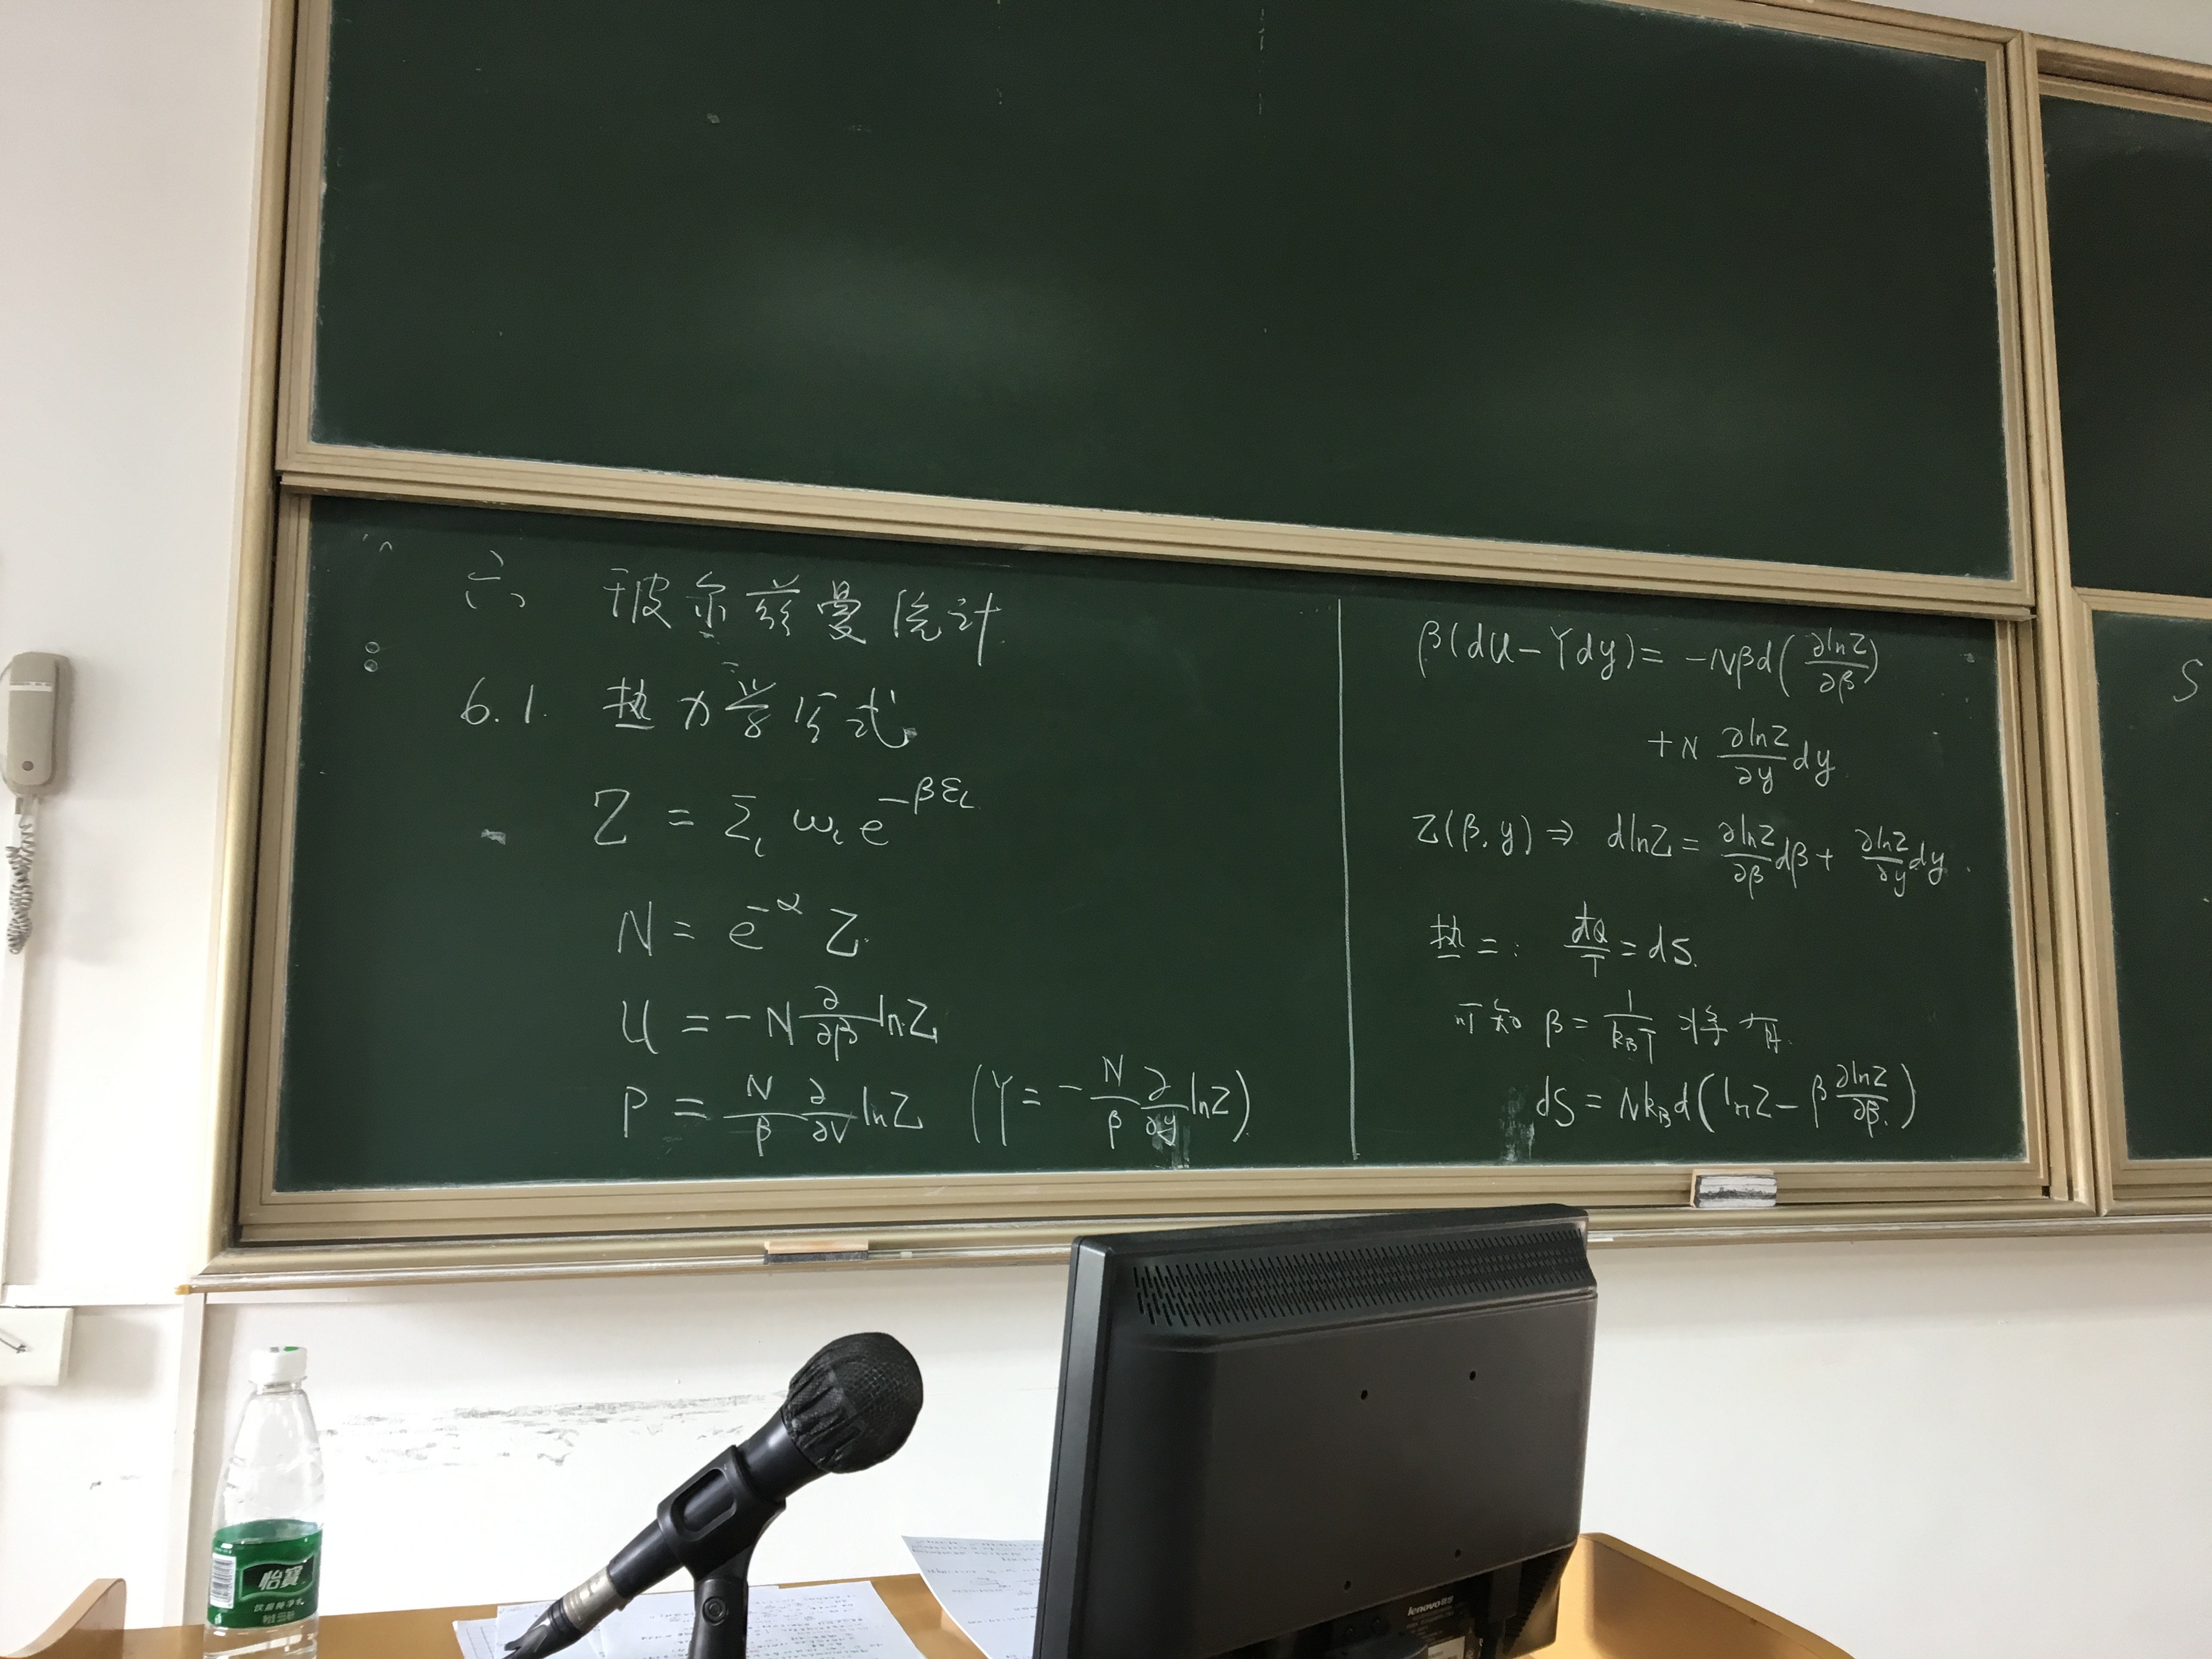 六 玻尔兹曼统计
6.1. 热力学公式
Z = Σ_l ω_l e^{-βε_l}
N = e^{-α} Z
U = -N ∂/∂β lnZ
P = N/β ∂/∂V lnZ (Y = -N/β ∂/∂y lnZ)
β(dU - Ydy) = -Nβd(∂lnZ/∂β)
+N ∂lnZ/∂y dy
Z(β, y) ⇒ dlnZ = ∂lnZ/∂β dβ + ∂lnZ/∂y dy.
热二: đQ/T = dS.
可知 β = 1/k_BT 将有
dS = Nk_Bd(lnZ - β ∂lnZ/∂β)
S
怡寶
lenovo